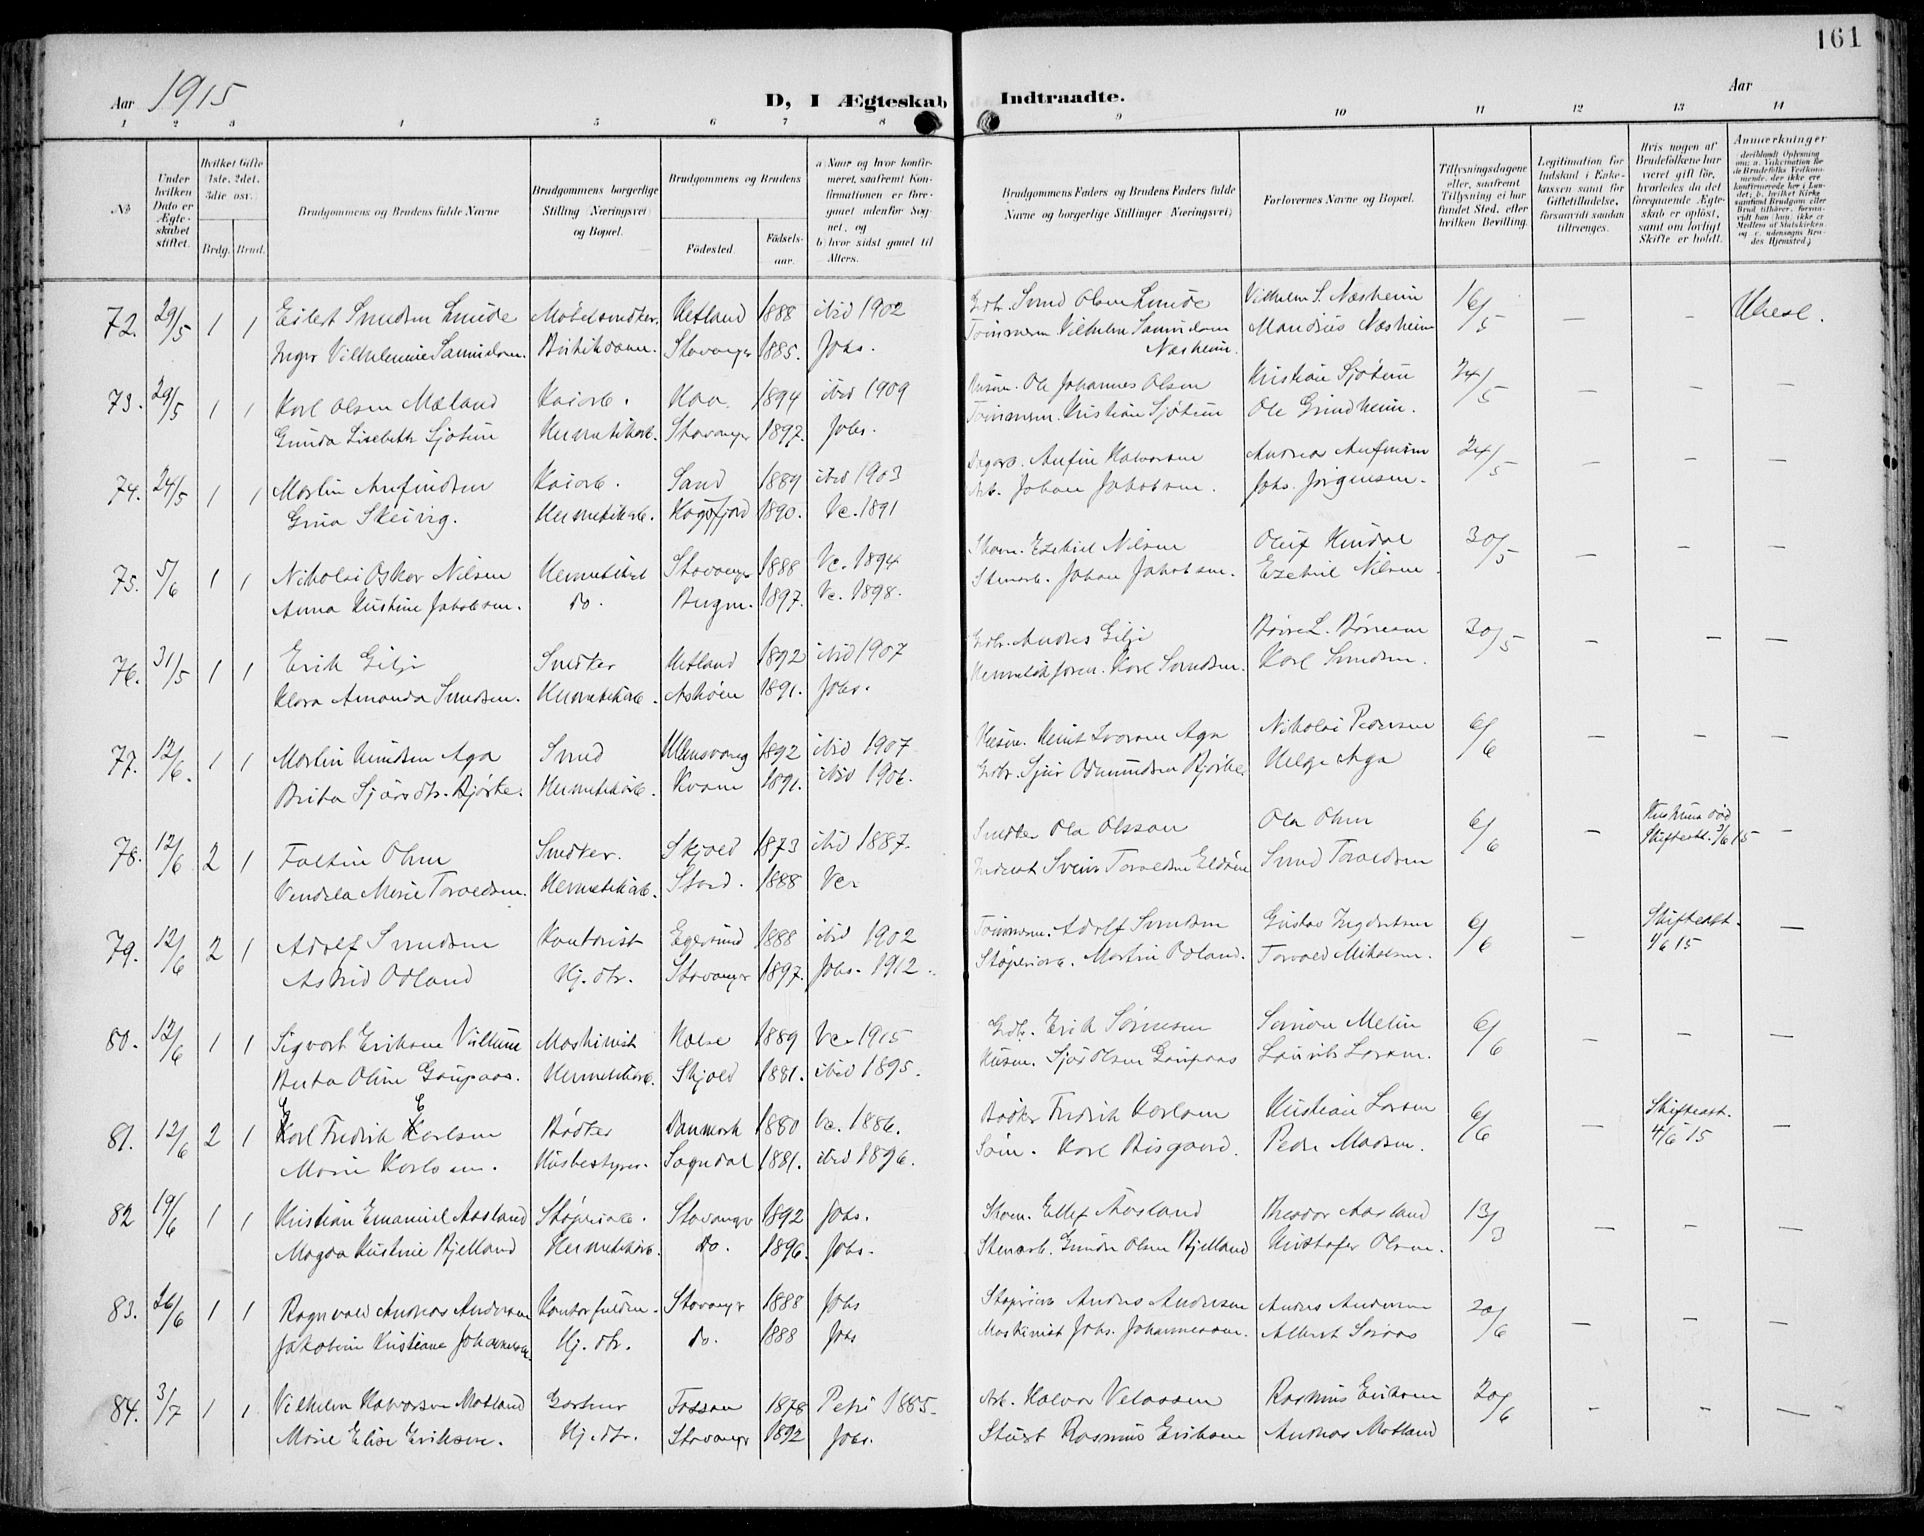 161
Aar 1915
D, I Ægteskab Indtraadte.
Aar
1 2 3 4 5 6 7 8 9 10 11 12 13 14
No
Under hvilken Dato er Ægteskabet stiftet.
Hvilket Gifte 1ste, 2det, 3die osv.
Brdg. Brud.
Brudgommens og Brudens fulde Navne
Brudgommens borgerlige Stilling (Næringsvei) og Bopæl.
Brudgommens og Brudens
Fødested. Fødselsaar.
a Naar og hvor konfirmeret, samt om Konfirmationen er foregaaet udenfor Sognet, og
b hvor sidst gaaet til Alters.
Brudgommens Faders og Brudens Faders fulde Navne og borgerlige Stillinger (Næringsvei)
Forlovernes Navne og Bopæl.
Tillysningsdagene eller, saafremt Tillysning ei har fundet Sted, efter hvilken Bevilling.
Legitimation for Indskud i Enkekassen samt for Giftetilladelse, forsaavidt saadan tiltrænges.
Hvis nogen af Brudefolkene har været gift før, hvorledes da det foregaaende Ægteskab er opløst, samt om lovligt Skifte er holdt.
Anmærkninger
72. 29/5 1 1 Eilert Svendsen Lunde Møbelsnedker. Hetland 1888 ibid 1902 Gdbr. Svend Olsen Lunde Vilhelm S. Næsheim 16/5 – –
Inger Vilhelmine Samuelsen. Butikdame. Stavanger 1885. Johs. Tømmerm. Vilhelm Samuelsen Næsheim. Mandius Næsheim
73. 29/5 1 1 Karl Olsen Mæland Kaiarb. 1894 ibid 1909 Ole Johannes Olsen Kristian Sjøtun 24/5 – – –
Gunda Lisebeth Sjøtun Hermetikarb. Stavanger 1897. Johs. Tømmerm. Kristian Sjøtun Ole Grindheim.
74. 24/5 1 1 Martin Anfindsen Kaiarb. Sand 1889 ibid 1903 Dagarb. Anfin Halvorsen Andreas Anfinsen 24/5 – – –
Gina Skeivig. Hermetikarb. Høgsfjord 1890. Vc. 1891 Arb. Johan Jakobsen. Johs. Jørgensen.
75. 5/6 1 1 Nikolai Oskar Nilsen Hermetikarb Stavanger 1888 Vc. 1894 Skom. Ezekiel Nilsen Oluf Hindal 30/5 – – –
Anna Kristine Jakobsen. do. 1897. Vc. 1898. Stenarb. Johan Jakobsen. Ezekiel Nilsen.
76. 31/5 1 1 Erik Gilje Snedker Hetland 1892 ibid 1907 Gdbr. Andres Gilje Børre L. Børresen 30/5 – – –
Klara Amanda Svendsen. Hermetikarb. Askøen 1891. Johs. Karl Svendsen. Karl Svendsen.
77. 12/6. 1 1 Martin Knudsen Aga Smed Ullensvang 1892 ibid 1907 Husm. Knut Ivarsen Aga Nikolai Pedersen 6/6 – – –
Brita Sjursdtr. Bjørke. Hermetikarb. Kvam 1891. ibid 1906. Gdbr. Sjur Odmundsen Bjørke. Helge Aga
78. 12/6 2 1 Faltin Olsen Snedker. Skjold 1873 ibid 1887. Snedker Ola Olsson Ola Olsen 6/6 – Hustruen død –
Vendela Marie Toraldsen. Hermetikarb. Stord. 1888 Vc. Svein Toraldsen Eldøen Svend Toraldsen Skifteatt. 3/6 15
79. 12/6 2 1 Adolf Svendsen Kontorist Egersund 1888 ibid 1902 Tømmerm. Adolf Svendsen Gustav Ingebretsen 6/6 – Skifteatt. –
Astrid Odland Hj. dtr. Stavanger 1897. Johs. 1912. Støperiarb. Martin Odland. Torvald Mikalsen. 9/6 15
80. 12/6 1 1 Sigvart Eriksen Maskinist 1889 Vc. 1915 Gdbr. Erik Sørensen Simon Melin 6/6 – – –
Berta Oline Gaupaas. Hermetikarb. Skjold 1881. ibid 1895. Husm. Sjur Olsen Gaupaas Lauritz Larsen.
81. 12/6 2 1 Karl Fredrik Karlsen Bødker Danmark 1880 Vc. 1886. Bødker Fredrik Karlsen Kristian Larsen 6/6 – Skifteatt. –
Marie Karlsen. Husbestyrer. Sogndal 1881. ibid 1896. Søm. Karl Bisgaard. Peder Madsen. 4/6 15
82 19/6 1 1 Kristian Emanuel Aasland Støperiarb. Stavanger 1892 Johs. Skom. Ellef Aasland Theodor Aasland 13/3 – – –
Magda Kristine Bjelland Hermetikarb. do. 1896. Johs. Stenarb. Gunder Olsen Bjelland Kristofer Olsen.
83. 26/6 1 1 Ragnvald Andreas Andersen Kontorfuldm. Stavanger 1888 Johs Støperiarb Andres Andersen Andres Andersen 20/6 – – –
Jakobine Kristiane Johannessen. Hj. dtr. do. 1888 Johs Maskinist Johs. Johannessen. Albert
84. 3/7 1 1 Vilhelm Halvorsen Matland Gartner Fossan 1878 Petri 1885. Arb. Halvor Velassen Rasmus Eriksen 20/6 – – –
Marie Elise Eriksen. Hj. dtr. Stavanger 1892 Johs. Rasmus Eriksen Andreas Matland